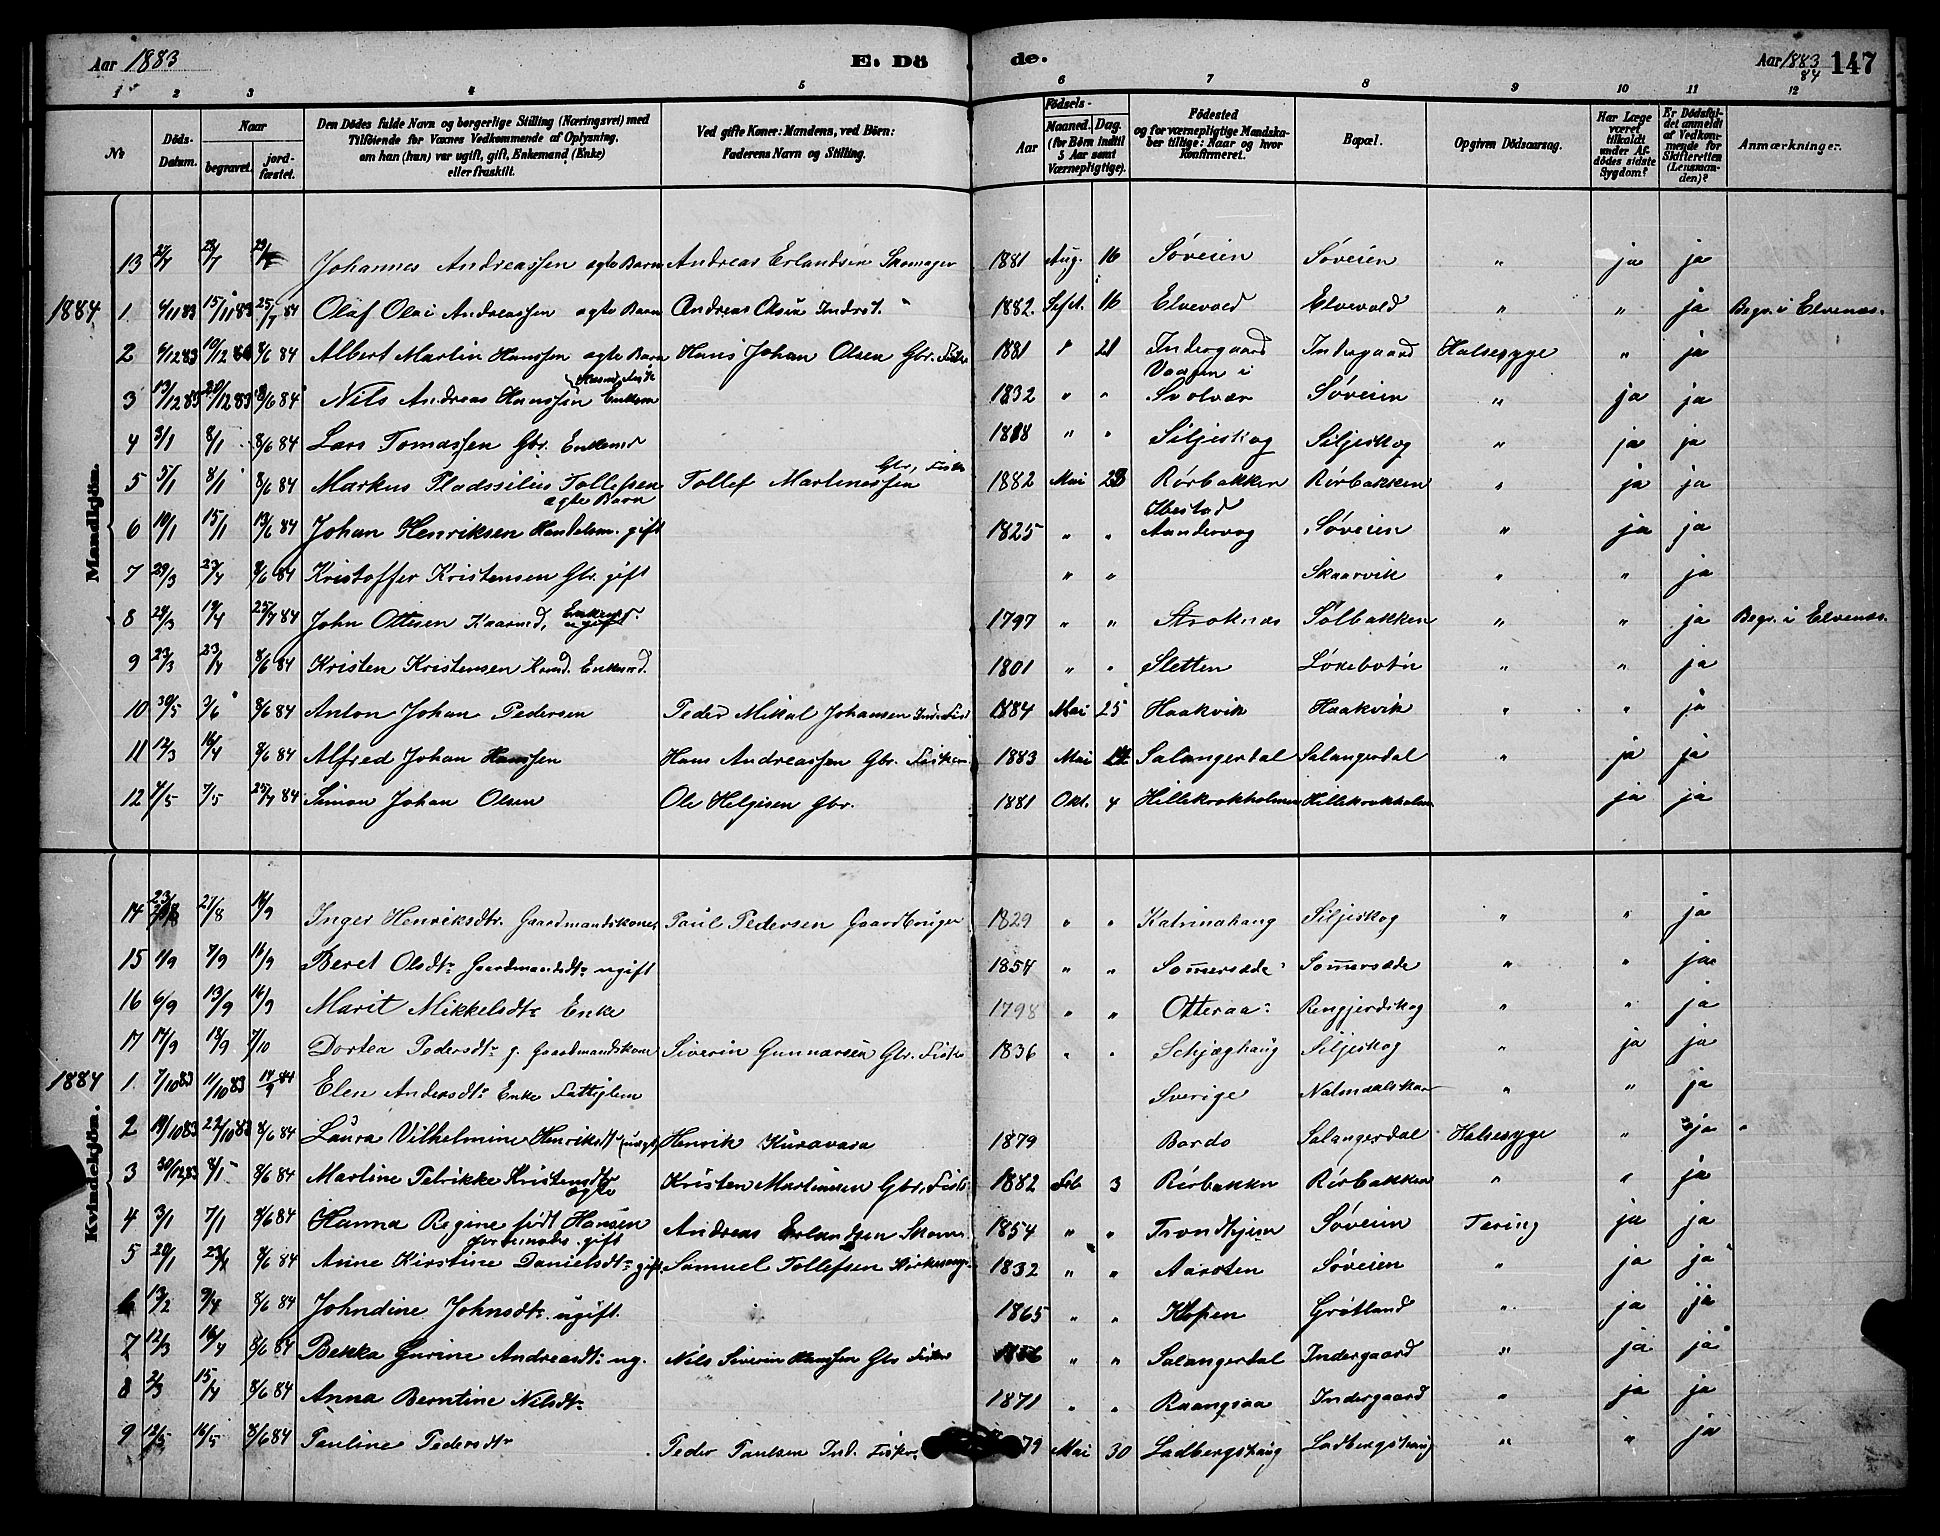 Aar 1883 E. Dö de. Aar 1883/84 147
1 2 3 4 5 6 7 8 9 10 11 12
№ Döds-Datum. Naar begravet. jordfæstet. Den Dödes fulde Navn og borgerlige Stilling (Næringsvei) med Tilföiende for Voxnes Vedkommende af Oplysning, om han (hun) var ugift, gift, Enkemand (Enke) eller fraskilt. Ved gifte Koner: Mandens, ved Börn: Faderens Navn og Stilling. Födsels- Aar Maaned. Dag. (for Börn indtil 5 Aar samt Værnepligtige). Födested og for værnepligtige Mandskaber tillige: Naar og hvor Konfirmeret. Bopæl. Opgiven Dödsaarsag. Har Læge været tilkaldt under Afdödes sidste Sygdom? Er Dödsfaldet anmeldt af Vedkommende for Skifteretten (Lensmanden)? Anmærkninger.
Mandkjön.
13 27/7 28/7 Johannes Andreassen ægte Barn Andreas Erlandsen Skomager 1881 Aug. 16 Søveien Søveien " ja ja
1884 1 4/11 83 15/11 83 25/7 84 Olaf Olai Andreassen ægte Barn Andreas Olsen Inderst. 1882. Sept. 16 Elvevold Elvevold " " ja Begr. i Elvenæs.
2 6/12 83 19/12 8/6 84 Albert Martin Hanssen ægte Barn Hans Johan Olsen Gbr. Fisker 1881 21 Indergaard Indergaard Halsesyge " ja
3 13/12 83 20/12 83 8/6 84 Nils Andreas Hanssen Enkem Vaagen i
1832 " " Svolvær Søveien " ja ja
4 3/1 8/1 8/6 84 Lars Tomassen Gbr. Enkemd 1818 " " Siljeskog Siljeskog " ja ja
5 5/1 8/1 8/6 84 Markus Pladssilius Tollefsen ægte Barn Tollef Martinessen Gbr, Fisker 1882 Mai 23 Rørbakken Rørbakken " ja ja
6 10/1 15/1 13/6 84 Johan Henriksen Handelsm. gift 1825 " " Ibestad Aandervag Søveien " ja ja
7 29/3 23/4 8/6 84 Kristoffer Kristensen Gbr. gift " " Skaarvik " " ja
8 29/3 19/4 25/7 84 John Ottesen Kaarmd, Enkemd 1797 " " Stroknæs Solbakken " " ja Begr. i Elvenæs.
9 23/3 23/4 8/6 84 Kristen Kristensen Enkemd. 1801 " " Sletten Løxebotn " " ja
10 30/5 3/6 8/6 84 Anton Johan Pedersen Peder Mikal Johansen Ind. Fisk 1884 Mai 25 Haakvik Haakvik " " ja
11 12/3 16/4 8/6 84 Alfred Johan Hanssen Hans Andreassen Gbr. Fisker 1883 Mai Salangerdal Salangerdal " ja ja
12 4/5 7/5 25/7 84 Simon Johan Olsen Ole Helgesen Gbr. 1881 Okt. 4 Hillekrokholmen Hillekrokholm ja ja
Kvindekjön.
14 23/8 27/8 16/9 Inger Henriksdtr. Gaardmandskone, Paul Pedersen Gaardbruger 1829 " " Katrinahaug Siljeskog " " ja
15 1/9 7/9 16/9 Beret Olsdtr Gaardmandsdtr ugift 1854 " " Sommersæde Sommersæde " " ja
16 6/9 13/9 16/9 Marit Mikkelsdtr Enke 1798 " " Otteraa Rengjerdskog " " ja
17 14/9 18/9 7/10 Dortea Pedersdtr g. Gaardmandskone Siverin Gunnarsen Gbr. Fisker 1836 " " Schjæghaug Siljeskog " ja ja
1884 1 7/10 83 11/10 83 14/9 84 Elen Andersdtr Enke Fattiglem Sverige Natmaalskar " " ja
2 19/10 83 22/10 83 8/6 84 Laura Vilhelmine Henriksdtr (uægte) Henrik Kuravara 1879 Bardo Salangerdal Halsesyge " ja
3 30/12 83 8/1 8/6 84 Martine Petrikke Kristensdtr ægte Kristen Martinsen Gbr, Fisk. 1882 Feb 3 Rørbakken Rørbakken " " ja
4 3/1 7/1 8/6 84 Hanna Regine født Hansen gift Andreas Erlandsen Skom. 1854 " " Trondhjem Søveien Tæring ja ja
5 20/1 23/1 8/6 84 Anne Kirstine Danielsdtr gift, Samuel Tollefsen Kirkesang. 1832 " " Aarsten Søveien " ja ja
6 13/2 9/4 8/6 84 Johndine Johnsdtr ugift. 1865 " " Kløpen Grøtland " ja ja
7 12/3 16/4 8/6 84 Bekka Gurine Andreasdtr ug. Nils Siverin Hanssen Gbr Fisker " " Salangerdal Indergaard " ja ja
8 2/3 15/4 8/6 84 Anna Berntine Nilsdtr 1871 " " Raangsaa Indergaard " ja ja
9 12/5 16/5 8/6 84 Pauline Pedersdtr Peder Paulsen Ind. Fisker. 79 Mai 30 Ladbergshaug Ladbergshaug " " ja